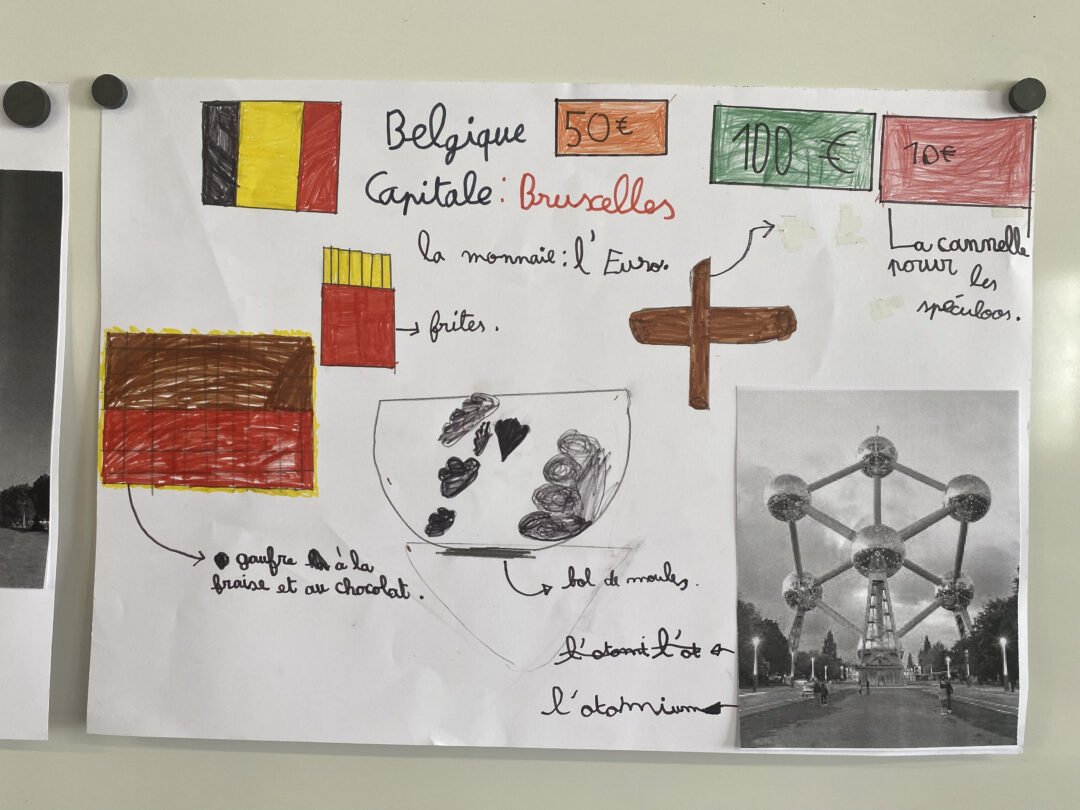 Belgique
Capitale : Bruxelles
50€
100 €
10€
la monnaie : l'Euro.
La cannelle
pour les
spéculoos.
frites.
gaufre à la
fraise et au chocolat.
bol de moules.
l'atomi l'at
l'atomium